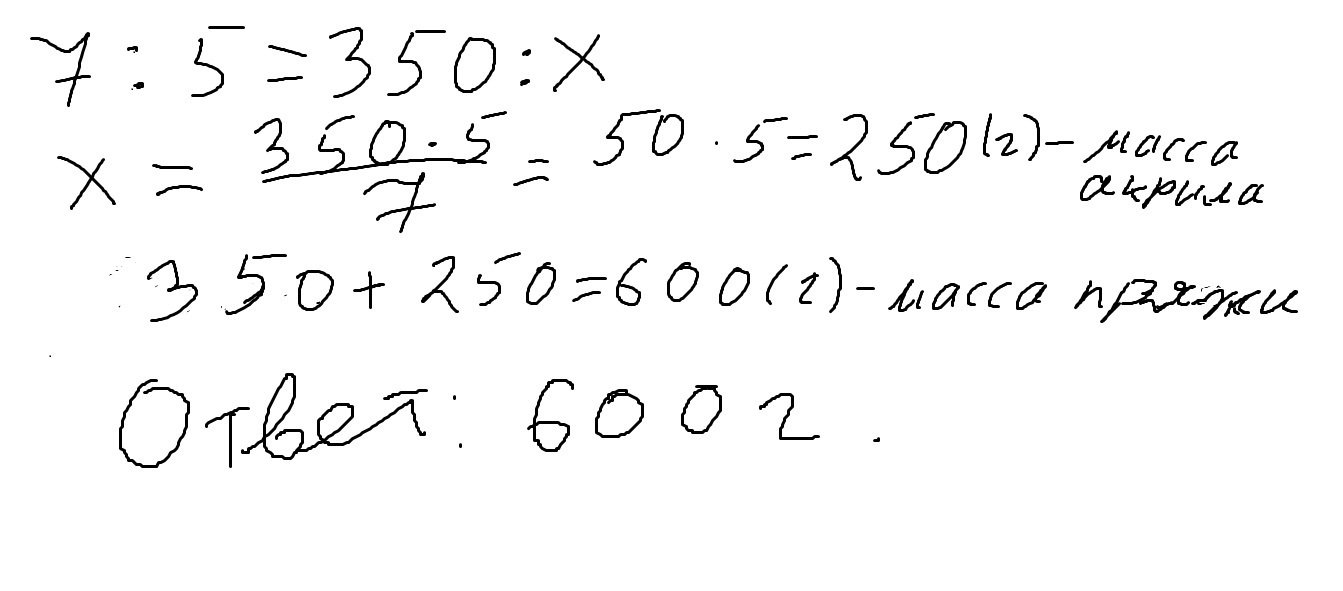 7 : 5 = 350 : x
x = 350 · 5 / 7 = 50 · 5 = 250 (г) - масса акрила
350 + 250 = 600 (г) - масса пряжи
Ответ: 600 г.